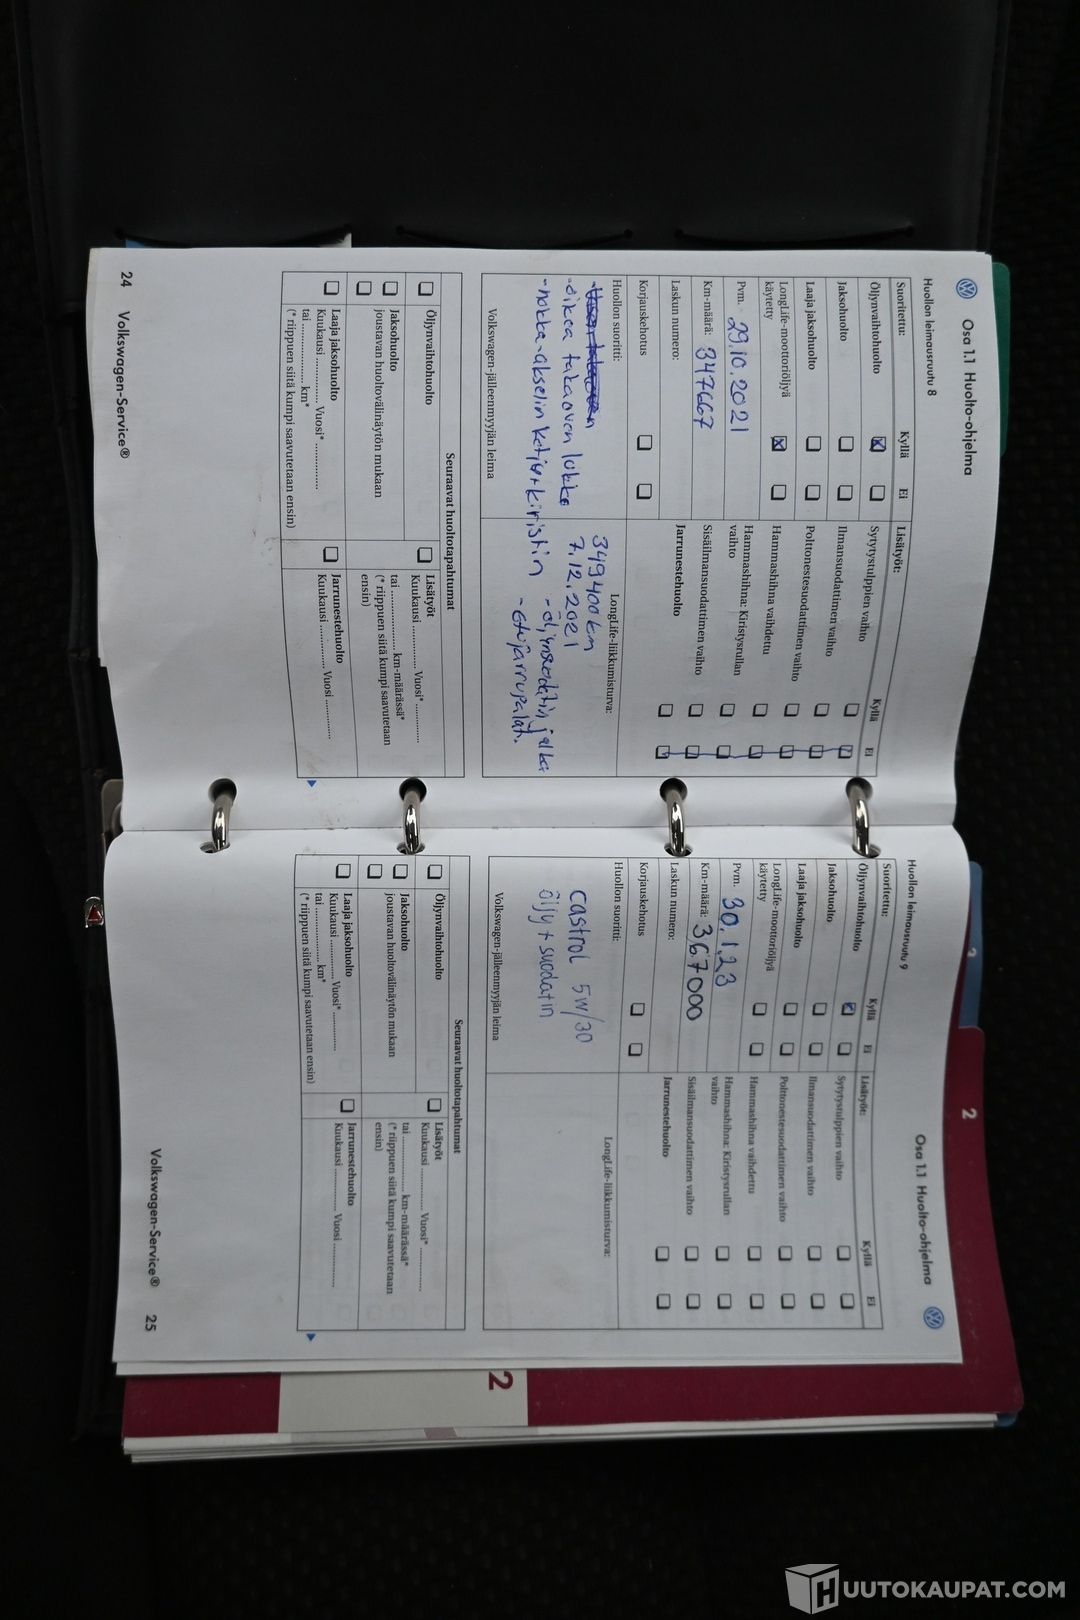 Osa 1.1 Huolto-ohjelma
Huollon leimausruutu 8
Suoritettu: Kyllä Ei
Öljynvaihtohuolto
Jaksohuolto
Laaja jaksohuolto
LongLife-moottoriöljyä
käytetty
Pvm. 29.10.2021
Km-määrä: 347667
Laskun numero:
Korjauskehotus
Lisätyöt: Kyllä Ei
Sytytystulppien vaihto
Ilmansuodattimen vaihto
Polttonestesuodattimen vaihto
Hammashihna vaihdettu
Hammashihna: Kiristysrullan
vaihto
Sisäilmansuodattimen vaihto
Jarrunestehuolto
Huollon suoritti:
-oikea takaoven lukko
-nokka-akselin ketju+kiristin
Volkswagen-jälleenmyyjän leima
LongLife-liikkumisturva:
349400km
7.12.2021
-öljynsuodatin jalka
-etujarrupalat.
Seuraavat huoltotapahtumat
Öljynvaihtohuolto
Jaksohuolto
joustavan huoltovälinäytön mukaan
Laaja jaksohuolto
Kuukausi ............... Vuosi* ...............
tai ............... km*
(* riippuen siitä kumpi saavutetaan ensin)
Lisätyöt
Kuukausi ............... Vuosi* ...............
tai ............... km-määrässä*
(* riippuen siitä kumpi saavutetaan
ensin)
Jarrunestehuolto
Kuukausi ............... Vuosi ...............
24 Volkswagen-Service®
Osa 1.1 Huolto-ohjelma
Huollon leimausruutu 9
Suoritettu: Kyllä Ei
Öljynvaihtohuolto
Jaksohuolto
Laaja jaksohuolto
LongLife-moottoriöljyä
käytetty
Pvm. 30.1.23
Km-määrä: 367000
Laskun numero:
Korjauskehotus
Lisätyöt: Kyllä Ei
Sytytystulppien vaihto
Ilmansuodattimen vaihto
Polttonestesuodattimen vaihto
Hammashihna vaihdettu
Hammashihna: Kiristysrullan
vaihto
Sisäilmansuodattimen vaihto
Jarrunestehuolto
Huollon suoritti:
Castrol 5W/30
öljy + suodatin
Volkswagen-jälleenmyyjän leima
LongLife-liikkumisturva:
Seuraavat huoltotapahtumat
Öljynvaihtohuolto
Jaksohuolto
joustavan huoltovälinäytön mukaan
Laaja jaksohuolto
Kuukausi ............... Vuosi* ...............
tai ............... km*
(* riippuen siitä kumpi saavutetaan ensin)
Lisätyöt
Kuukausi ............... Vuosi* ...............
tai ............... km-määrässä*
(* riippuen siitä kumpi saavutetaan
ensin)
Jarrunestehuolto
Kuukausi ............... Vuosi ...............
Volkswagen-Service® 25
2
2
HUUTOKAUPAT.COM